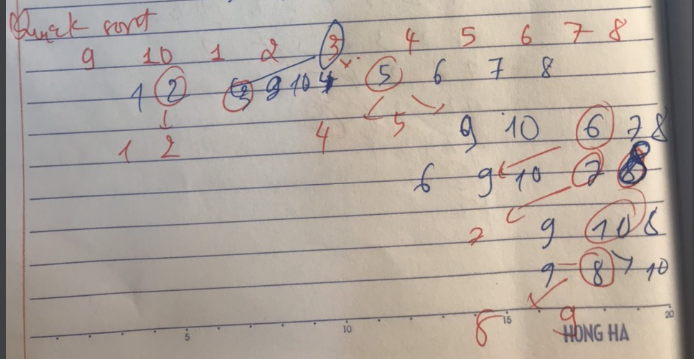 Quick sort
9 10 1 2 3 4 5 6 7 8
1 2 3 9 10 4 5 6 7 8
1 2 4 5 9 10 6 7 8
6 9 10 7 8
7 9 10 8
9 8 10
8 9
5 10 15 20
HONG HA